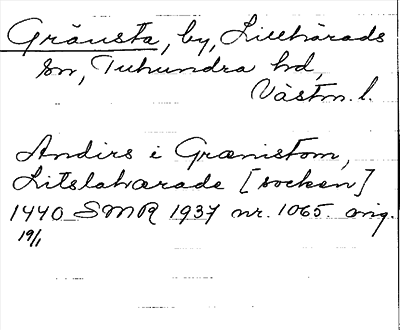 Gränsta, by, Lillhärads
sn, Tuhundra hd,
Västm. l.
Andirs i Grænistom,
Litslahærade [socken]
1440 SMR 1937 nr. 1065. orig.
19/1